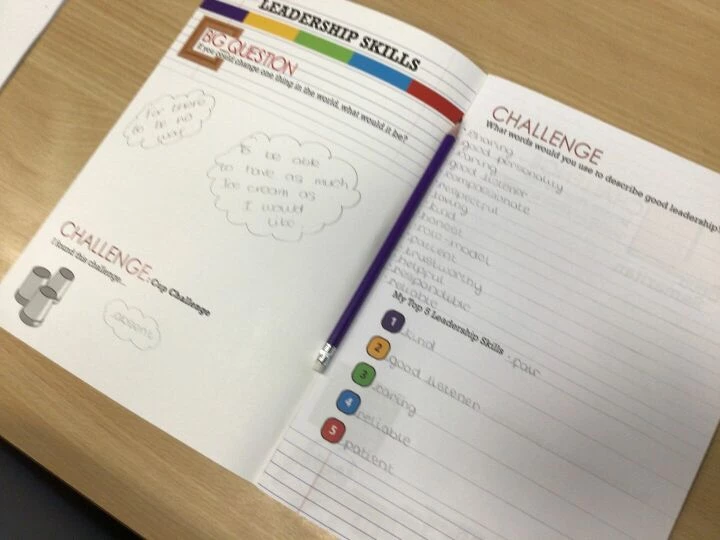 LEADERSHIP SKILLS
BIG QUESTION
If you could change one thing in the world, what would it be?
For there
to be no
war
To be able
to have as much
Ice cream as
I would
like
CHALLENGE: Cup Challenge
I found this challenge...
CHALLENGE
What words would you use to describe good leadership?
· sharing
· good personality
· caring
· good listener
· compassionate
· respectful
· loving
· kind
· honest
· role-model
· patient
· trustworthy
· helpful
· responsible
· reliable
My Top 5 Leadership Skills · fair
1 kind
2 good listener
3 caring
4 reliable
5 patient